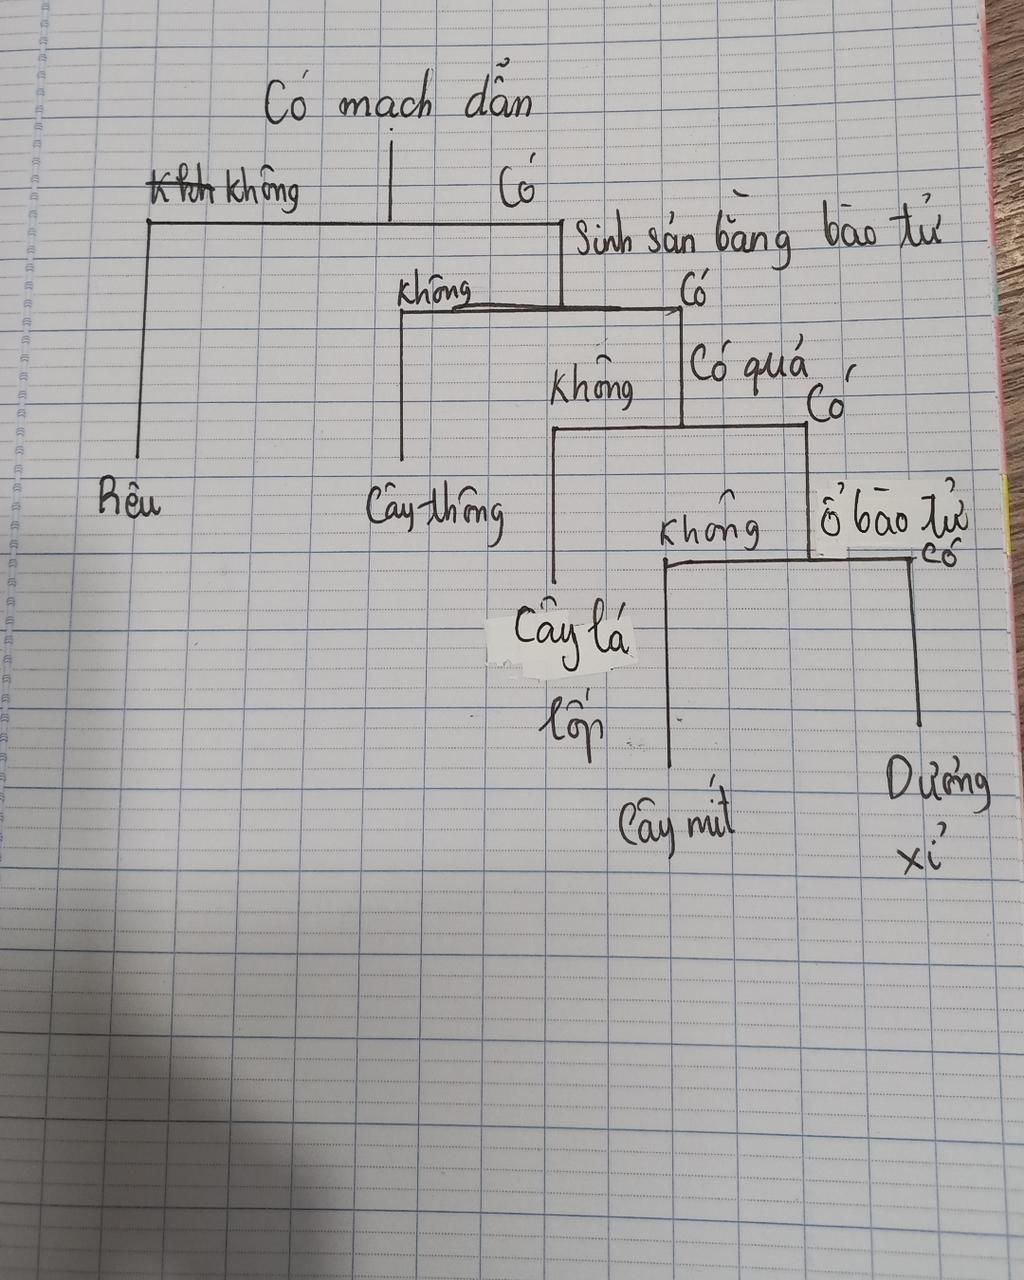 Có mạch dẫn
không
Có
Sinh sản bằng bào tử
không
Có
không
Có quả
Có
không
ổ bào tử
có
Rêu
Cây thông
Cây lá
lốp
Cây mít
Dương
xỉ